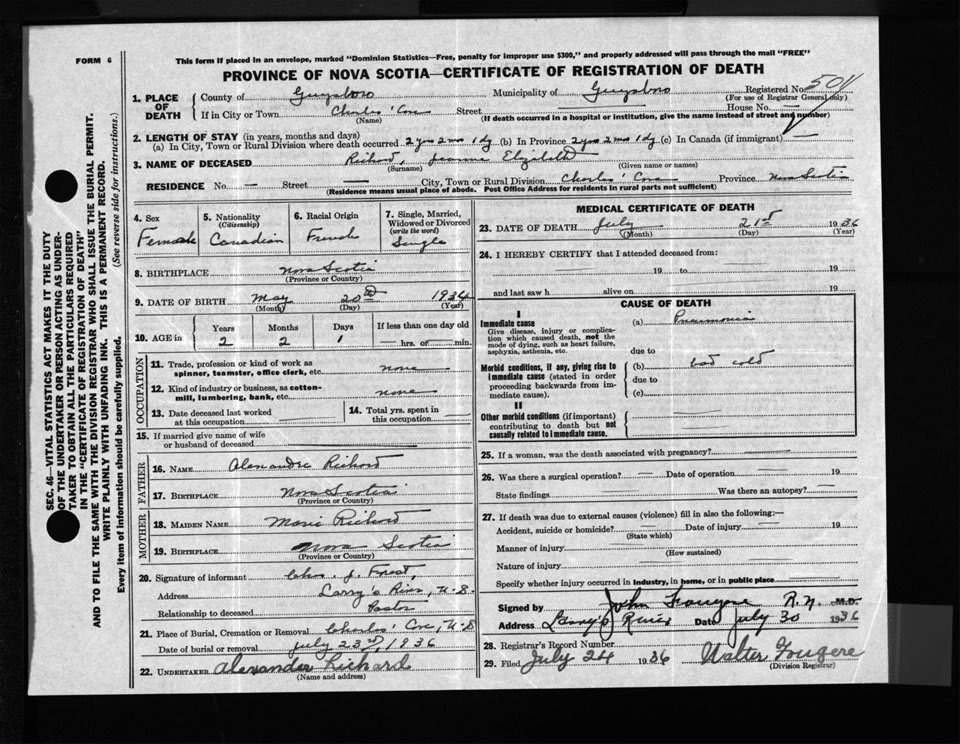 FORM 6
This form if placed in an envelope, marked "Dominion Statistics—Free, penalty for improper use $300," and properly addressed will pass through the mail "FREE"
PROVINCE OF NOVA SCOTIA—CERTIFICATE OF REGISTRATION OF DEATH
SEC. 46—VITAL STATISTICS ACT MAKES IT THE DUTY
OF THE UNDERTAKER OR PERSON ACTING AS UNDER-
TAKER TO OBTAIN ALL THE PARTICULARS REQUIRED
IN THE "CERTIFICATE OF REGISTRATION OF DEATH"
AND TO FILE THE SAME WITH THE DIVISION REGISTRAR WHO SHALL ISSUE THE BURIAL PERMIT.
WRITE PLAINLY WITH UNFADING INK. THIS IS A PERMANENT RECORD.
Every item of information should be carefully supplied. (See reverse side for instructions.)
1. PLACE OF DEATH County of Guysboro Municipality of Guysboro Registered No. 5011
(For use of Registrar General only)
If in City or Town Charlos' Cove Street House No. —
(Name) (If death occurred in a hospital or institution, give the name instead of street and number)
2. LENGTH OF STAY (in years, months and days)
(a) In City, Town or Rural Division where death occurred 2 yrs 2 mos 1 dy (b) In Province 2 yrs 2 mos 1 dy (c) In Canada (if immigrant) —
3. NAME OF DECEASED Richard, Jeanne Elizabeth
(Surname) (Given name or names)
RESIDENCE No. — Street — City, Town or Rural Division Charlos' Cove Province Nova Scotia
(Residence means usual place of abode. Post Office Address for residents in rural parts not sufficient)
4. Sex Female
5. Nationality (Citizenship) Canadian
6. Racial Origin French
7. Single, Married, Widowed or Divorced (write the word) Single
8. BIRTHPLACE Nova Scotia
(Province or Country)
9. DATE OF BIRTH May 20th 1934
(Month) (Day) (Year)
10. AGE in Years 2 Months 2 Days 1 If less than one day old — hrs. or — min.
OCCUPATION
11. Trade, profession or kind of work as spinner, teamster, office clerk, etc. none
12. Kind of industry or business, as cotton-mill, lumbering, bank, etc. none
13. Date deceased last worked at this occupation
14. Total yrs. spent in this occupation
15. If married give name of wife or husband of deceased
FATHER
16. NAME Alexandre Richard
17. BIRTHPLACE Nova Scotia
(Province or Country)
MOTHER
18. MAIDEN NAME Marie Richard
19. BIRTHPLACE Nova Scotia
(Province or Country)
20. Signature of informant Chs. J. Forest,
Address Larry's River, N.S.
Relationship to deceased Pastor
21. Place of Burial, Cremation or Removal Charlos' Cove, N.S
Date of burial or removal July 23rd, 1936
22. UNDERTAKER Alexander Richard
(Name and address)
MEDICAL CERTIFICATE OF DEATH
23. DATE OF DEATH July 21st 1936
(Month) (Day) (Year)
24. I HEREBY CERTIFY that I attended deceased from:
19 to 19
and last saw h alive on 19
CAUSE OF DEATH
I
Immediate cause
Give disease, injury or complication which caused death, not the mode of dying, such as heart failure, asphyxia, asthenia, etc.
(a) Pneumonia
due to
Morbid conditions, if any, giving rise to immediate cause (stated in order proceeding backwards from immediate cause).
(b) bad cold
due to
(c)
II
Other morbid conditions (if important) contributing to death but not causally related to immediate cause.
25. If a woman, was the death associated with pregnancy?
26. Was there a surgical operation? — Date of operation 19
State findings Was there an autopsy? —
27. If death was due to external causes (violence) fill in also the following:—
Accident, suicide or homicide? — Date of injury — 19
(State which)
Manner of injury
(How sustained)
Nature of injury
Specify whether injury occurred in industry, in home, or in public place
Signed by John Fougere R.N. M.D.
Address Larry's River Date July 30 1936
28. Registrar's Record Number
29. Filed July 24 1936 Walter Fougere
(Division Registrar)